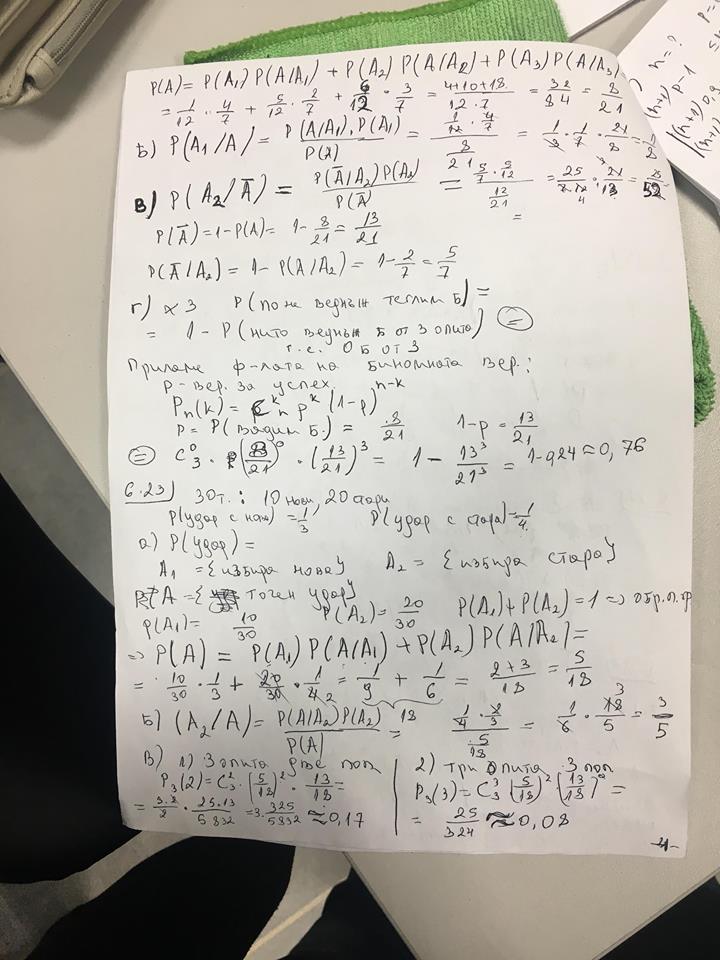 P(A) = P(A₁) P(A/A₁) + P(A₂) P(A/A₂) + P(A₃) P(A/A₃)
= 1/12 · 4/7 + 5/12 · 2/7 + 6/12 · 3/7 = 4+10+18/12·7 = 32/84 = 8/21
Б) P(A₁/A) = P(A/A₁)·P(A₁)/P(A) = 1/12 · 4/7 / 8/21 = 1/3 · 1/7 · 21/8 = 1/8
В) P(A₂/Ā) = P(Ā/A₂)P(A₂)/P(Ā) = 5/7 · 5/12 / 13/21 = 25/7·12 · 21/13 = 25/52
P(Ā) = 1-P(A) = 1- 8/21 = 13/21
=
P(Ā/A₂) = 1- P(A/A₂) = 1- 2/7 = 5/7
г) x 3 P(поне веднъж теглим Б) =
= 1 - P(нито веднъж Б от 3 опита) =
т.е. 0 Б от 3
Приламе ф-лата на биномната вер.:
p - вер. за успех.
Pₙ(k) = Cₙᵏ pᵏ (1-p)ⁿ⁻ᵏ
p = P(вадим Б.) = 8/21 1-p = 13/21
= C₃⁰ · (8/21)⁰ · (13/21)³ = 1 - 13³/21³ = 1-0,24 ≈ 0,76
6.23) 30т.: 10 нови, 20 стари
P(удар с нова) = 1/3 P(удар с стара) = 1/4
а) P(удар) =
A₁ = {избира нова} A₂ = {избира стара}
A = { точен удар}
P(A₁) = 10/30 P(A₂) = 20/30 P(A₁)+P(A₂) = 1 => обр. п. гр
=> P(A) = P(A₁) P(A/A₁) + P(A₂) P(A/A₂) =
= 10/30 · 1/3 + 20/30 · 1/4 = 1/9 + 1/6 = 2+3/18 = 5/18
Б) (A₂/A) = P(A/A₂)P(A₂)/P(A) = 1/4 · 2/3 / 5/18 = 1/6 · 18/5 = 3/5
18
В) 1) 3 опита две поп
P₃(2) = C₃² · (5/18)² · 13/18 =
= 3.2/2 · 25.13/5832 = 3. 325/5832 ≈ 0,17
2) три опита 3 поп
P₃(3) = C₃³ (5/18)² (13/18)⁰ =
= 25/324 ≈ 0,08
-4-
n = ?